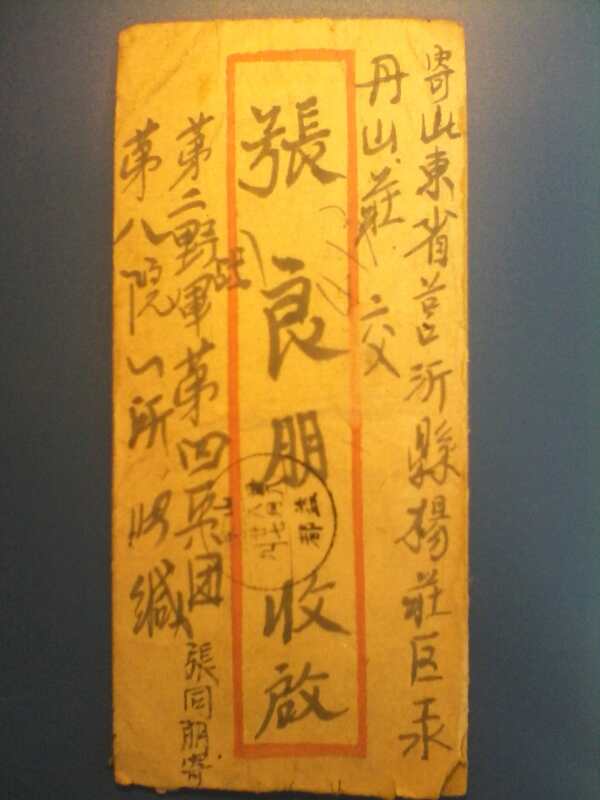 寄山東省莒沂縣揚莊区汞
丹山莊 交
張良朋收啟
第二野战軍第四兵团
張同朋寄
第八院一所 缄